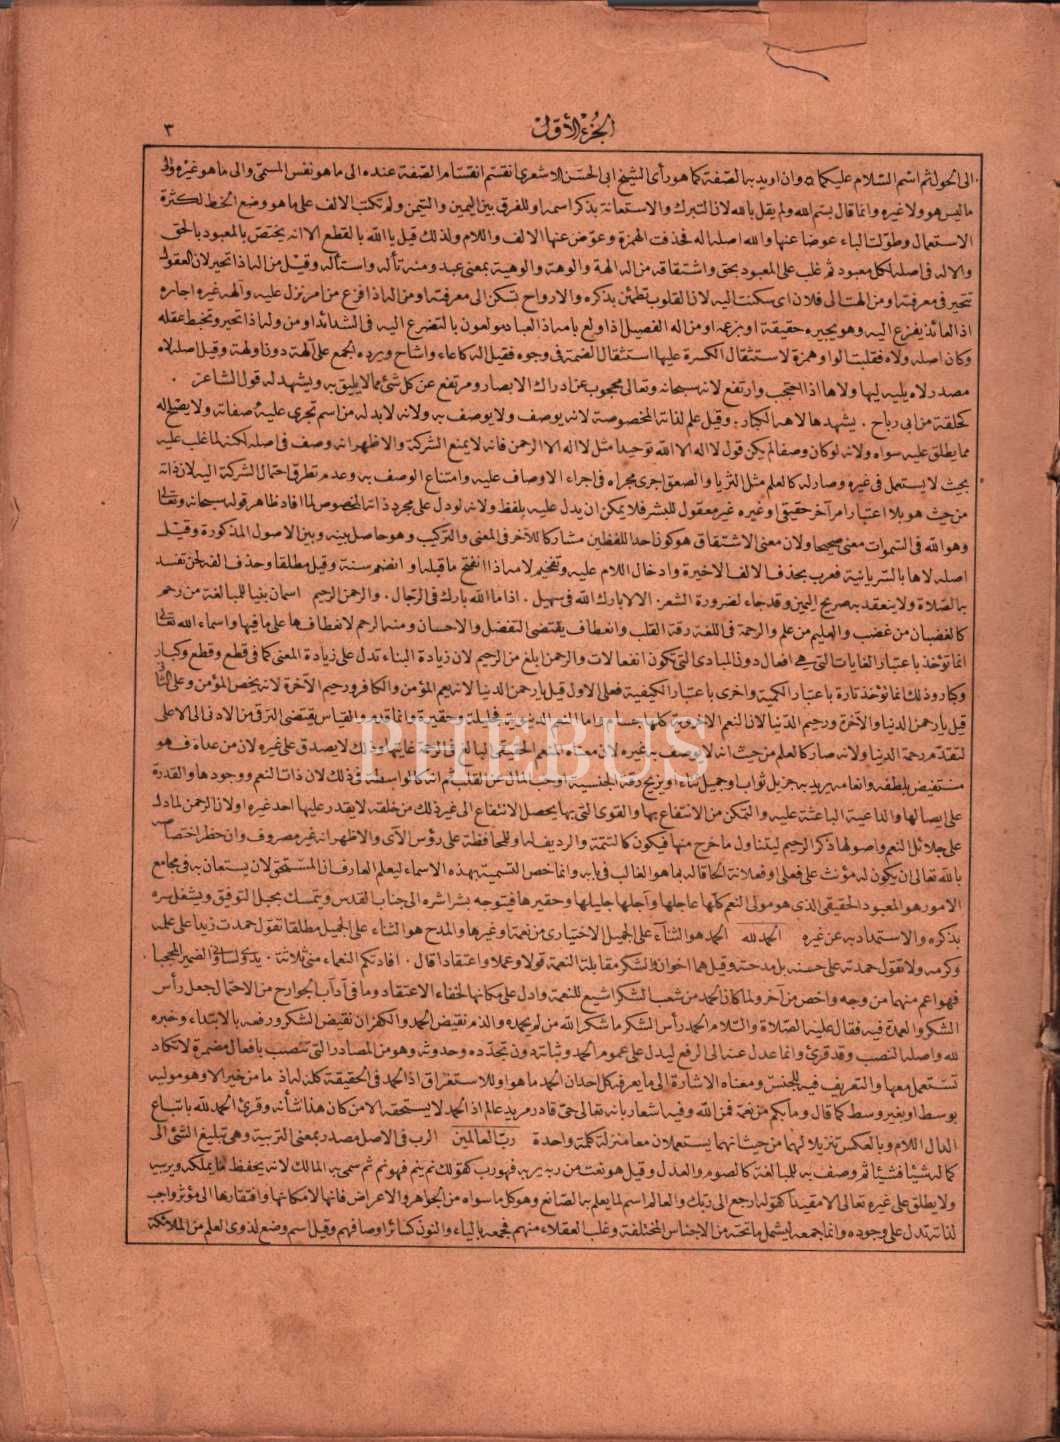 ٣
الجزء الأول
الى الحول ثم اسم السلام عليكما ٥ وان اريد به الصفة كما هو رأى الشيخ ابى الحسن الاشعرى انقسم انقسام الصفة عنده الى ما هو نفس المسمى والى ما هو غيره والى
ما ليس هو ولا غيره وانما قال بسم الله ولم يقل بالله لان التبرك والاستعانة بذكر اسمه وللفرق بين اليمين والتيمن ولم تكتب الالف على ما هو وضع الخط لكثرة
الاستعمال وطولت الباء عوضا عنها والله اصله اله فحذفت الهمزة وعوض عنها الالف واللام ولذلك قيل يا الله بالقطع الا انه يختص بالمعبود بالحق
والاله فى اصله لكل معبود ثم غلب على المعبود بحق واشتقاقه من اله الهة والوهة والوهية بمعنى عبد ومنه تأله واستأله وقيل من اله اذا تحير لان العقول
تتحير فى معرفته او من الهت الى فلان اى سكنت اليه لان القلوب تطمئن بذكره والارواح تسكن الى معرفته او من اله اذا فزع من امر نزل عليه وآلهه غيره اجاره
اذ العائذ يفزع اليه وهو يجيره حقيقة او بزعمه او من اله الفصيل اذا ولع بامه اذ العباد مولعون بالتضرع اليه فى الشدائد او من وله اذا تحير وتخبط عقله
وكان اصله ولاه فقلبت الواو همزة لاستثقال الكسرة عليها استثقال الضمة فى وجوه فقيل اله كاعاء واشاح ويرده الجمع على آلهة دون اولهة وقيل اصله لاه
مصدر لاه يليه ليها ولاها اذا احتجب وارتفع لانه سبحانه وتعالى محجوب عن ادراك الابصار ومرتفع عن كل شئ مما لا يليق به ويشهد له قول الشاعر ٠
كحلفة من ابى رباح ٠ يشهدها لاهه الكبار ٠ وقيل علم لذاته المخصوصة لانه يوصف ولا يوصف به ولانه لا بد له من اسم تجرى عليه صفاته ولا يصلح له
مما يطلق عليه سواه ولانه لو كان وصفا لم يكن قول لا اله الا الله توحيدا مثل لا اله الا الرحمن فانه لا يمنع الشركة والاظهر انه وصف فى اصله لكنه لما غلب عليه
بحيث لا يستعمل فى غيره وصار له كالعلم مثل الثريا والصعق اجرى مجراه فى اجراء الاوصاف عليه وامتناع الوصف به وعدم تطرق احتمال الشركة اليه لان ذاته
من حيث هو بلا اعتبار امر آخر حقيقى او غيره غير معقول للبشر فلا يمكن ان يدل عليه بلفظ ولانه لو دل على مجرد ذاته المخصوص لما افاد ظاهر قوله سبحانه وتعالى
وهو الله فى السموات معنى صحيحا ولان معنى الاشتقاق هو كون احد اللفظين مشاركا للآخر فى المعنى والتركيب وهو حاصل بينه وبين الاصول المذكورة وقيل
اصله لاها بالسريانية فعرب بحذف الالف الاخيرة وادخال اللام عليه وتفخيم لامه اذا انفتح ما قبله او انضم سنة وقيل مطلقا وحذف الفه لحن تفسد
به الصلاة ولا ينعقد به صريح اليمين وقد جاء لضرورة الشعر ٠ الا لا بارك الله فى سهيل ٠ اذا ما الله بارك فى الرجال ٠ والرحمن الرحيم اسمان بنيا للمبالغة من رحم
كالغضبان من غضب والعليم من علم والرحمة فى اللغة رقة القلب وانعطاف يقتضى التفضل والاحسان ومنه الرحم لانعطافها على ما فيها واسماء الله تعالى
انما تؤخذ باعتبار الغايات التى هى افعال دون المبادى التى تكون انفعالات والرحمن ابلغ من الرحيم لان زيادة البناء تدل على زيادة المعنى كما فى قطع وقطع وكبار
وكبار وذلك انما تؤخذ تارة باعتبار الكمية واخرى باعتبار الكيفية فعلى الاول قيل يا رحمن الدنيا لانه يعم المؤمن والكافر ورحيم الآخرة لانه يخص المؤمن وعلى الثانى
قيل يا رحمن الدنيا والآخرة ورحيم الدنيا لان النعم الاخروية كلها جسام واما النعم الدنيوية فجليلة وحقيرة وانما قدم والقياس يقتضى الترقى من الادنى الى الاعلى
لتقدم رحمة الدنيا ولانه صار كالعلم من حيث انه لا يوصف به غيره لان معناه المنعم الحقيقى البالغ فى الرحمة غايتها وذلك لا يصدق على غيره لان من عداه فهو
مستفيض بلطفه وانعامه يريد به جزيل ثواب او جميل ثناء او يزيح رقة الجنسية او حب المال عن القلب ثم انه كالواسطة فى ذلك لان ذات النعم ووجودها والقدرة
على ايصالها والداعية الباعثة عليه والتمكن من الانتفاع بها والقوى التى بها يحصل الانتفاع الى غير ذلك من خلقه لا يقدر عليها احد غيره او لان الرحمن لما دل
على جلائل النعم واصولها ذكر الرحيم ليتناول ما خرج منها فيكون كالتتمة والرديف له او للمحافظة على رؤس الآى والاظهر انه غير مصروف وان حظر اختصاصه
بالله تعالى ان يكون له مؤنث على فعلى او فعلانة الحاقا له بما هو الغالب فى بابه وانما خص التسمية بهذه الاسماء ليعلم العارف ان المستحق لان يستعان به فى مجامع
الامور هو المعبود الحقيقى الذى هو مولى النعم كلها عاجلها وآجلها جليلها وحقيرها فيتوجه بشراشره الى جناب القدس ويتمسك بحبل التوفيق ويشغل سره
بذكره والاستمداد به عن غيره الحمد لله الحمد هو الثناء على الجميل الاختيارى من نعمة او غيرها والمدح هو الثناء على الجميل مطلقا تقول حمدت زيدا على علمه
وكرمه ولا تقول حمدته على حسنه بل مدحته وقيل هما اخوان والشكر مقابلة النعمة قولا وعملا واعتقادا قال ٠ افادتكم النعماء منى ثلاثة ٠ يدى ولسانى والضمير المحجبا ٠
فهو اعم منهما من وجه واخص من آخر ولما كان الحمد من شعب الشكر اشيع للنعمة وادل على مكانها لخفاء الاعتقاد وما فى آداب الجوارح من الاحتمال جعل رأس
الشكر والعمدة فيه فقال عليه الصلاة والسلام الحمد رأس الشكر ما شكر الله من لم يحمده والذم نقيض الحمد والكفران نقيض الشكر ورفعه بالابتداء وخبره
لله واصله النصب وقد قرئ وانما عدل عنه الى الرفع ليدل على عموم الحمد وثباته دون تجدده وحدوثه وهو من المصادر التى تنصب بافعال مضمرة لا تكاد
تستعمل معها والتعريف فيه للجنس ومعناه الاشارة الى ما يعرفه كل احد ان الحمد ما هو او للاستغراق اذ الحمد فى الحقيقة كله له اذ ما من خير الا وهو موليه
بوسط او بغير وسط كما قال وما بكم من نعمة فمن الله وفيه اشعار بانه تعالى حى قادر مريد عالم اذ الحمد لا يستحقه الا من كان هذا شأنه وقرئ الحمد لله باتباع
الدال اللام وبالعكس تنزيلا لهما من حيث انهما يستعملان معا منزلة كلمة واحدة رب العالمين الرب فى الاصل مصدر بمعنى التربية وهى تبليغ الشئ الى
كماله شيئا فشيئا ثم وصف به للمبالغة كالصوم والعدل وقيل هو نعت من ربه يربه فهو رب كقولك نم ينم فهو نم ثم سمى به المالك لانه يحفظ ما يملكه ويربيه
ولا يطلق على غيره تعالى الا مقيدا كقوله ارجع الى ربك والعالم اسم لما يعلم به الصانع وهو كل ما سواه من الجواهر والاعراض فانها لامكانها وافتقارها الى مؤثر واجب
لذاته تدل على وجوده وانما جمعه ليشمل ما تحته من الاجناس المختلفة وغلب العقلاء منهم فجمعه بالياء والنون كسائر اوصافهم وقيل اسم وضع لذوى العلم من الملائكة
PHEBUS